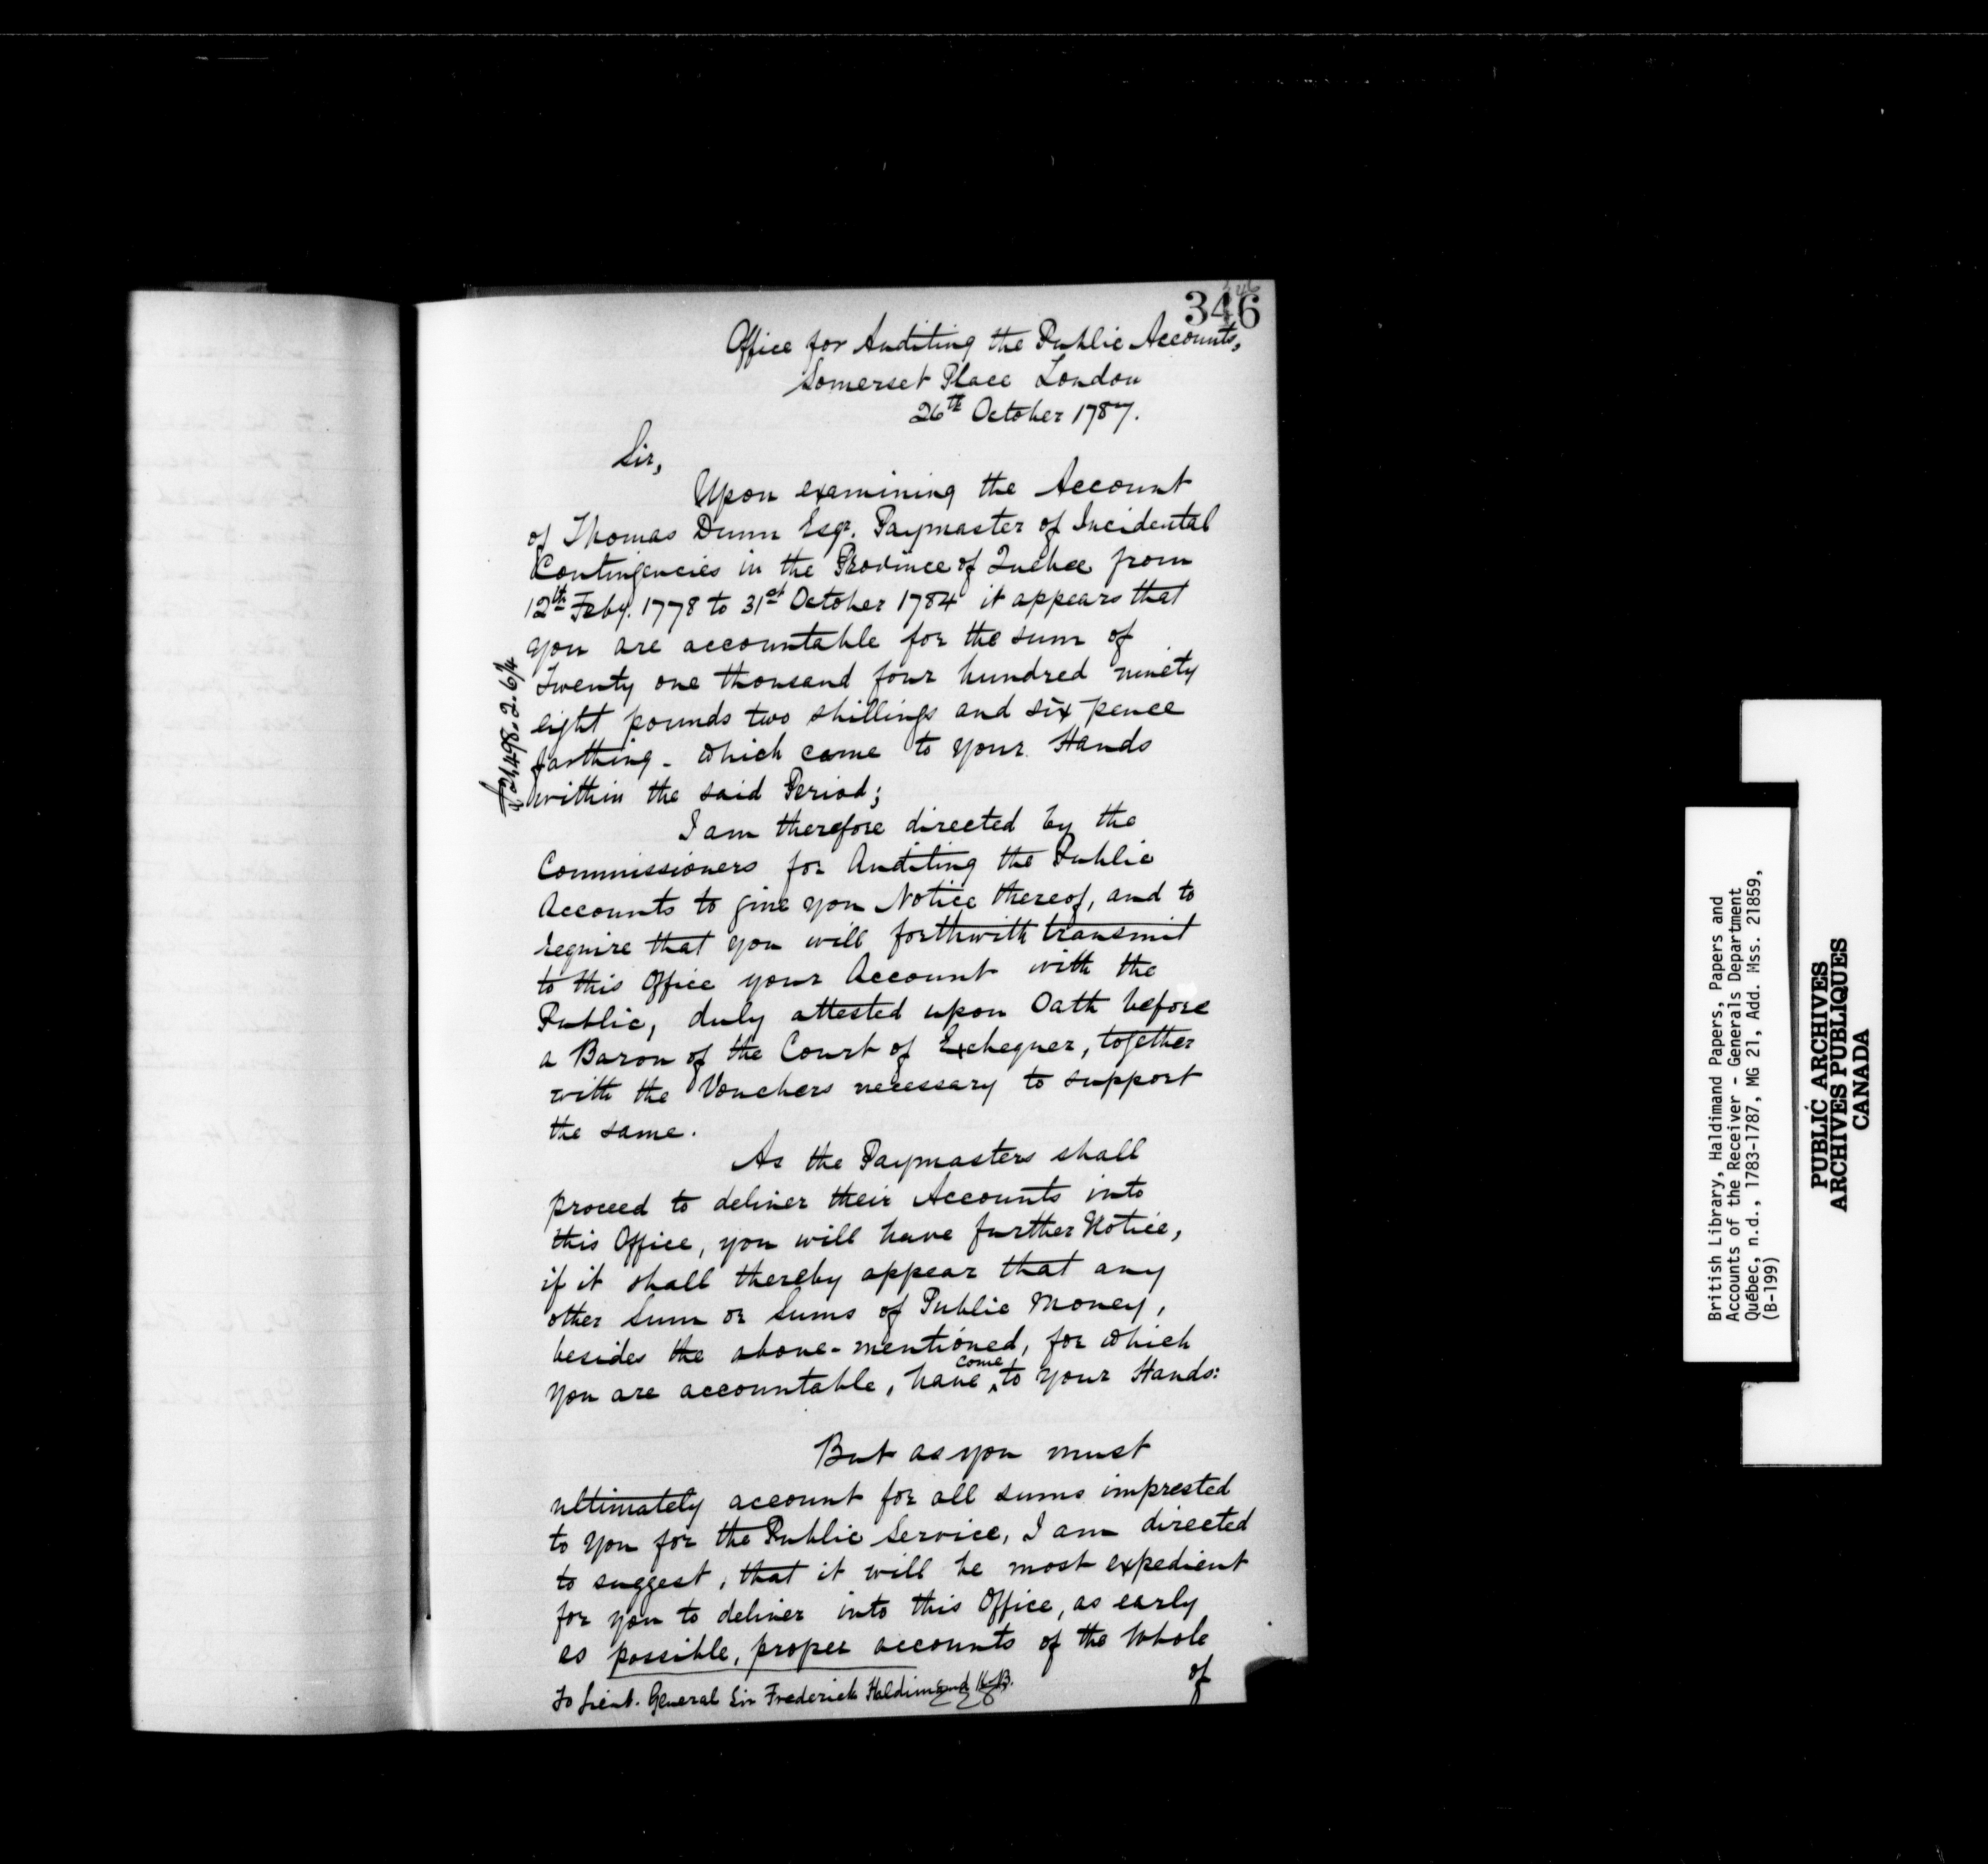 346
346
Office for Auditing the Public Accounts,
Somerset Place London
26th October 1787.
Sir,
Upon examining the Account
of Thomas Dunn Esqr. Paymaster of Incidental
Contingencies in the Province of Quebec from
12th Feby. 1778 to 31st October 1784 it appears that
you are accountable for the sum of
Twenty one thousand four hundred ninety
eight pounds two shillings and six pence
farthing - which came to your Hands
within the said Period;
£21,498.2.6¼
I am therefore directed by the
Commissioners for Auditing the Public
Accounts to give you Notice thereof, and to
require that you will forthwith transmit
to this Office your Account with the
Public, duly attested upon Oath before
a Baron of the Court of Exchequer, together
with the Vouchers necessary to support
the same.
As the Paymasters shall
proceed to deliver their Accounts into
this Office, you will have further Notice,
if it shall thereby appear that any
other Sum or Sums of Public Money,
besides the above-mentioned, for which
you are accountable, have come to your Hands:
But as you must
ultimately account for all sums imprested
to you for the Public Service, I am directed
to suggest, that it will be most expedient
for you to deliver into this Office, as early
as possible, proper accounts of the Whole
of
To Lieut. General Sir Frederick Haldimand K.B.
British Library, Haldimand Papers, Papers and
Accounts of the Receiver - Generals Department
Québec, n.d., 1783-1787, MG 21, Add. Mss. 21859,
(B-199)
PUBLIC ARCHIVES
ARCHIVES PUBLIQUES
CANADA